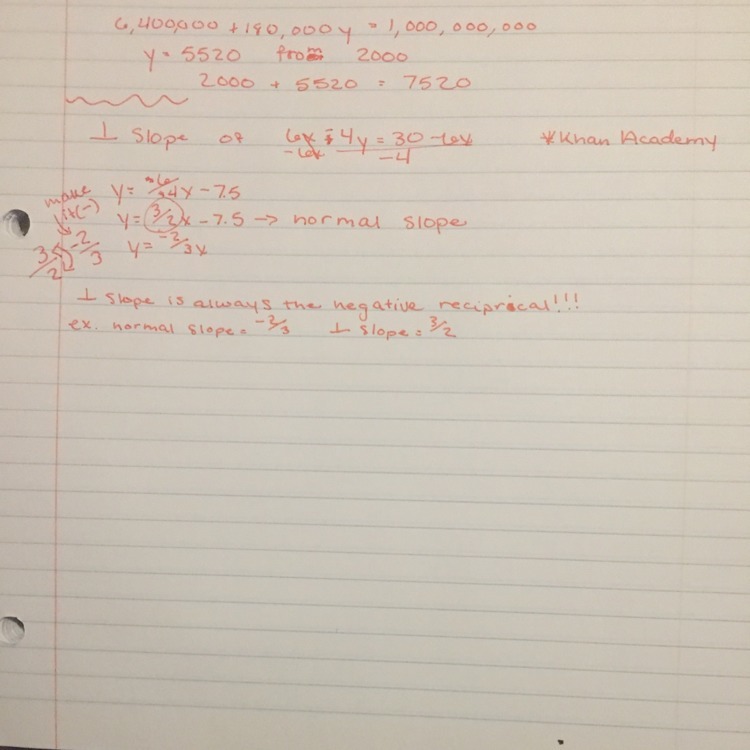 6,400,000 + 180,000y = 1,000,000,000
y = 5520 from 2000
2000 + 5520 = 7520
⊥ slope of 6x - 4y = 30 - 6x *Khan Academy
-6x -4
y = -6/-4x - 7.5
make it (-)
y = 3/2x - 7.5 → normal slope
3/2 -2/3 y = -2/3x
⊥ slope is always the negative reciprical!!!
ex. normal slope = -2/3 ⊥ slope = 3/2